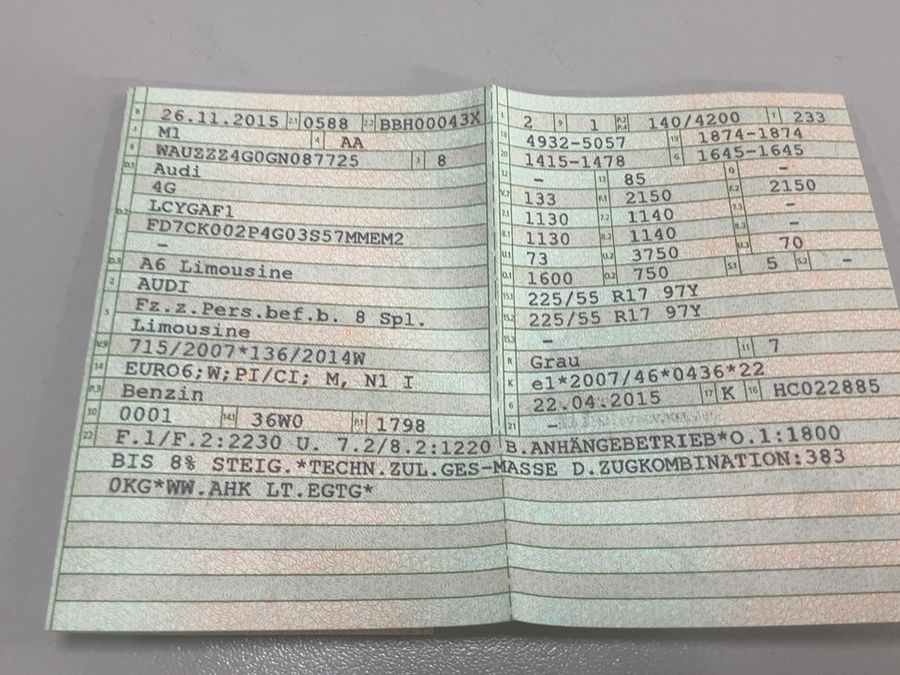 B 26.11.2015 2.1 0588 2.2 BBH00043X
J M1 4 AA
E WAUZZZ4G0GN087725 3 8
D.1 Audi
4G
D.2 LCYGAF1
FD7CK002P4G03S57MMEM2
–
D.3 A6 Limousine
2 AUDI
5 Fz.z.Pers.bef.b. 8 Spl.
Limousine
V.9 715/2007*136/2014W
14 EURO6;W;PI/CI; M, N1 I
P.3 Benzin
10 0001 14.1 36W0 P.1 1798
L 2 9 1 P.2 P.4 140/4200 T 233
18 4932-5057 19 1874-1874
20 1415-1478 G 1645-1645
12 – 13 85 Q –
V.7 133 F.1 2150 F.2 2150
7.1 1130 7.2 1140 7.3 –
8.1 1130 8.2 1140 8.3 –
U.1 73 U.2 3750 U.3 70
O.1 1600 O.2 750 S.1 5 S.2 –
15.1 225/55 R17 97Y
15.2 225/55 R17 97Y
15.3 –
R Grau 11 7
K e1*2007/46*0436*22
6 22.04.2015 17 K 16 HC022885
21 –
22 F.1/F.2:2230 U. 7.2/8.2:1220 B.ANHÄNGEBETRIEB*O.1:1800
BIS 8% STEIG.*TECHN.ZUL.GES-MASSE D.ZUGKOMBINATION:383
0KG*WW.AHK LT.EGTG*